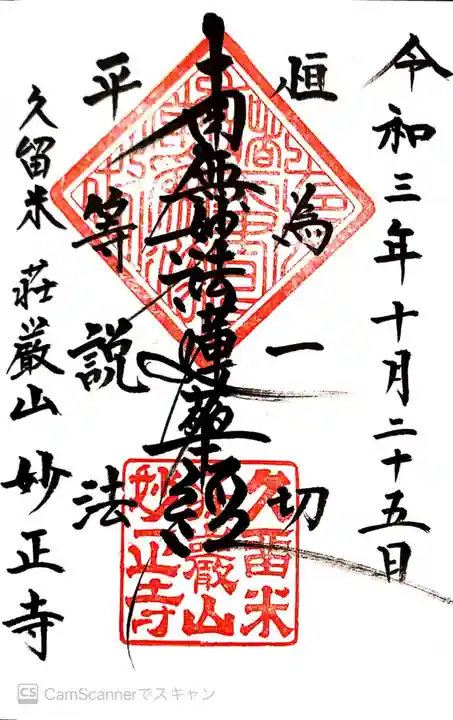 令和三年十月二十五日
恒為一切
南無妙法蓮華経
平等説法
久留米 荘厳山 妙正寺
久留米
荘巌山
妙正寺
CS CamScannerでスキャン